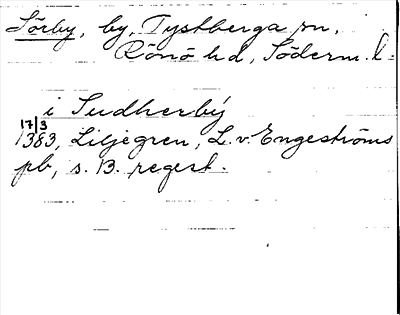 Sörby, by, Tystberga sn,
Rönö hd, Söderm. l.
i Sudherby
17/3
1383, Liljegren, L. v. Engeströms
pb, s. 13. regest.